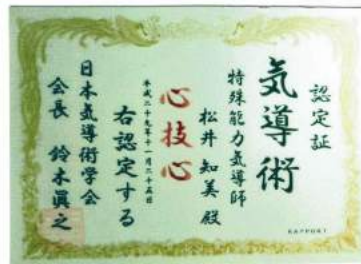 認定証
気導術
特殊能力気導師
松井知美殿
心技心
平成二十九年十一月二十五日
右認定する
日本気導術学会
会長 鈴木眞之
RAPPORT